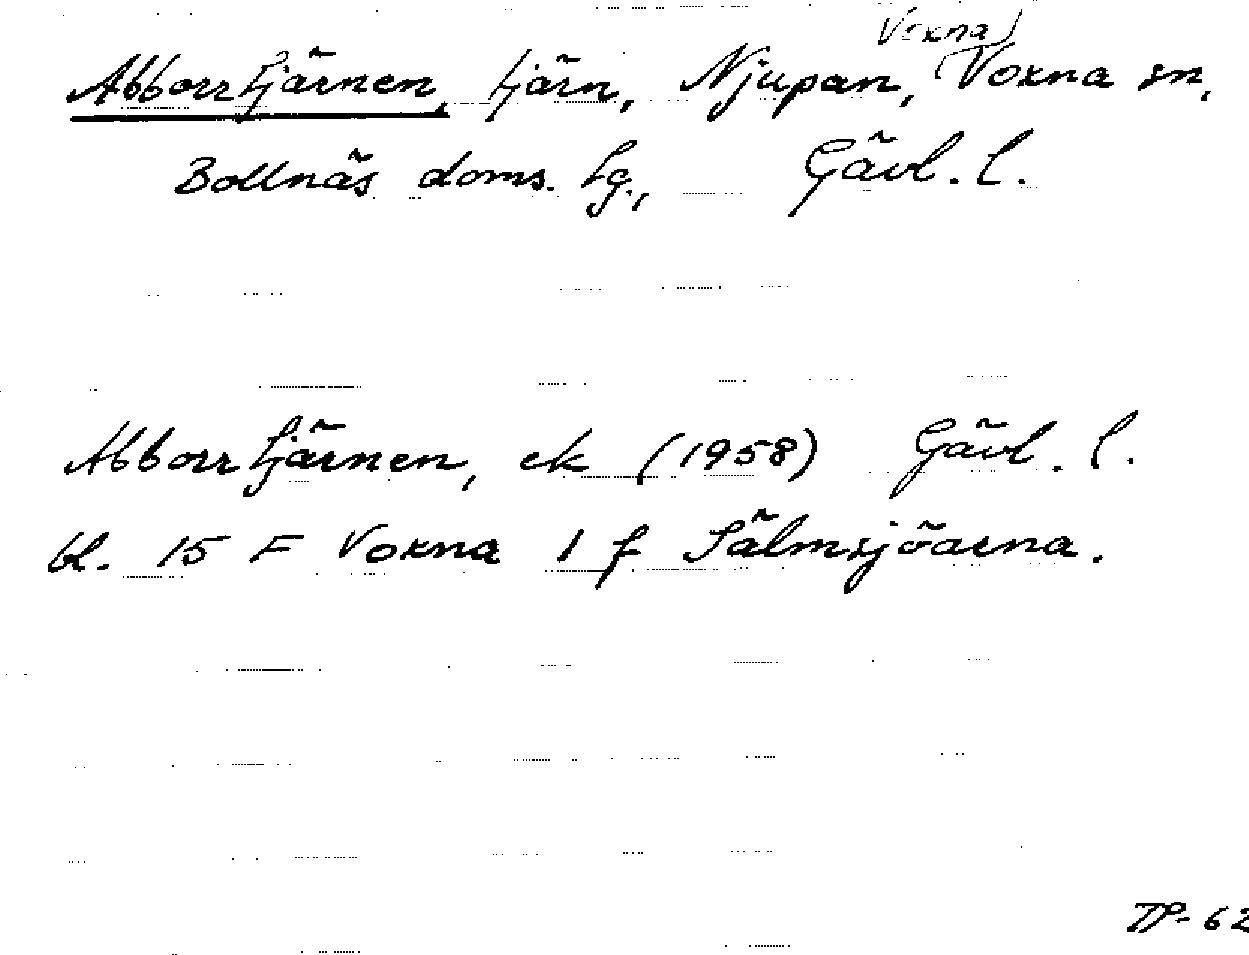 Voxna)
Abborrtjärnen, tjärn, Njupan, (Voxna sn,
Bollnäs doms. tg., Gävl. l.
Abborrtjärnen, ek (1958) Gävl. l.
bl. 15 F Voxna 1 f Sälmsjöarna.
TP-62